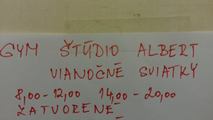 GYM ŠTÚDIO ALBERT
VIANOČNÉ SVIATKY
8,00-12,00 14,00-20,00
ZATVORENÉ